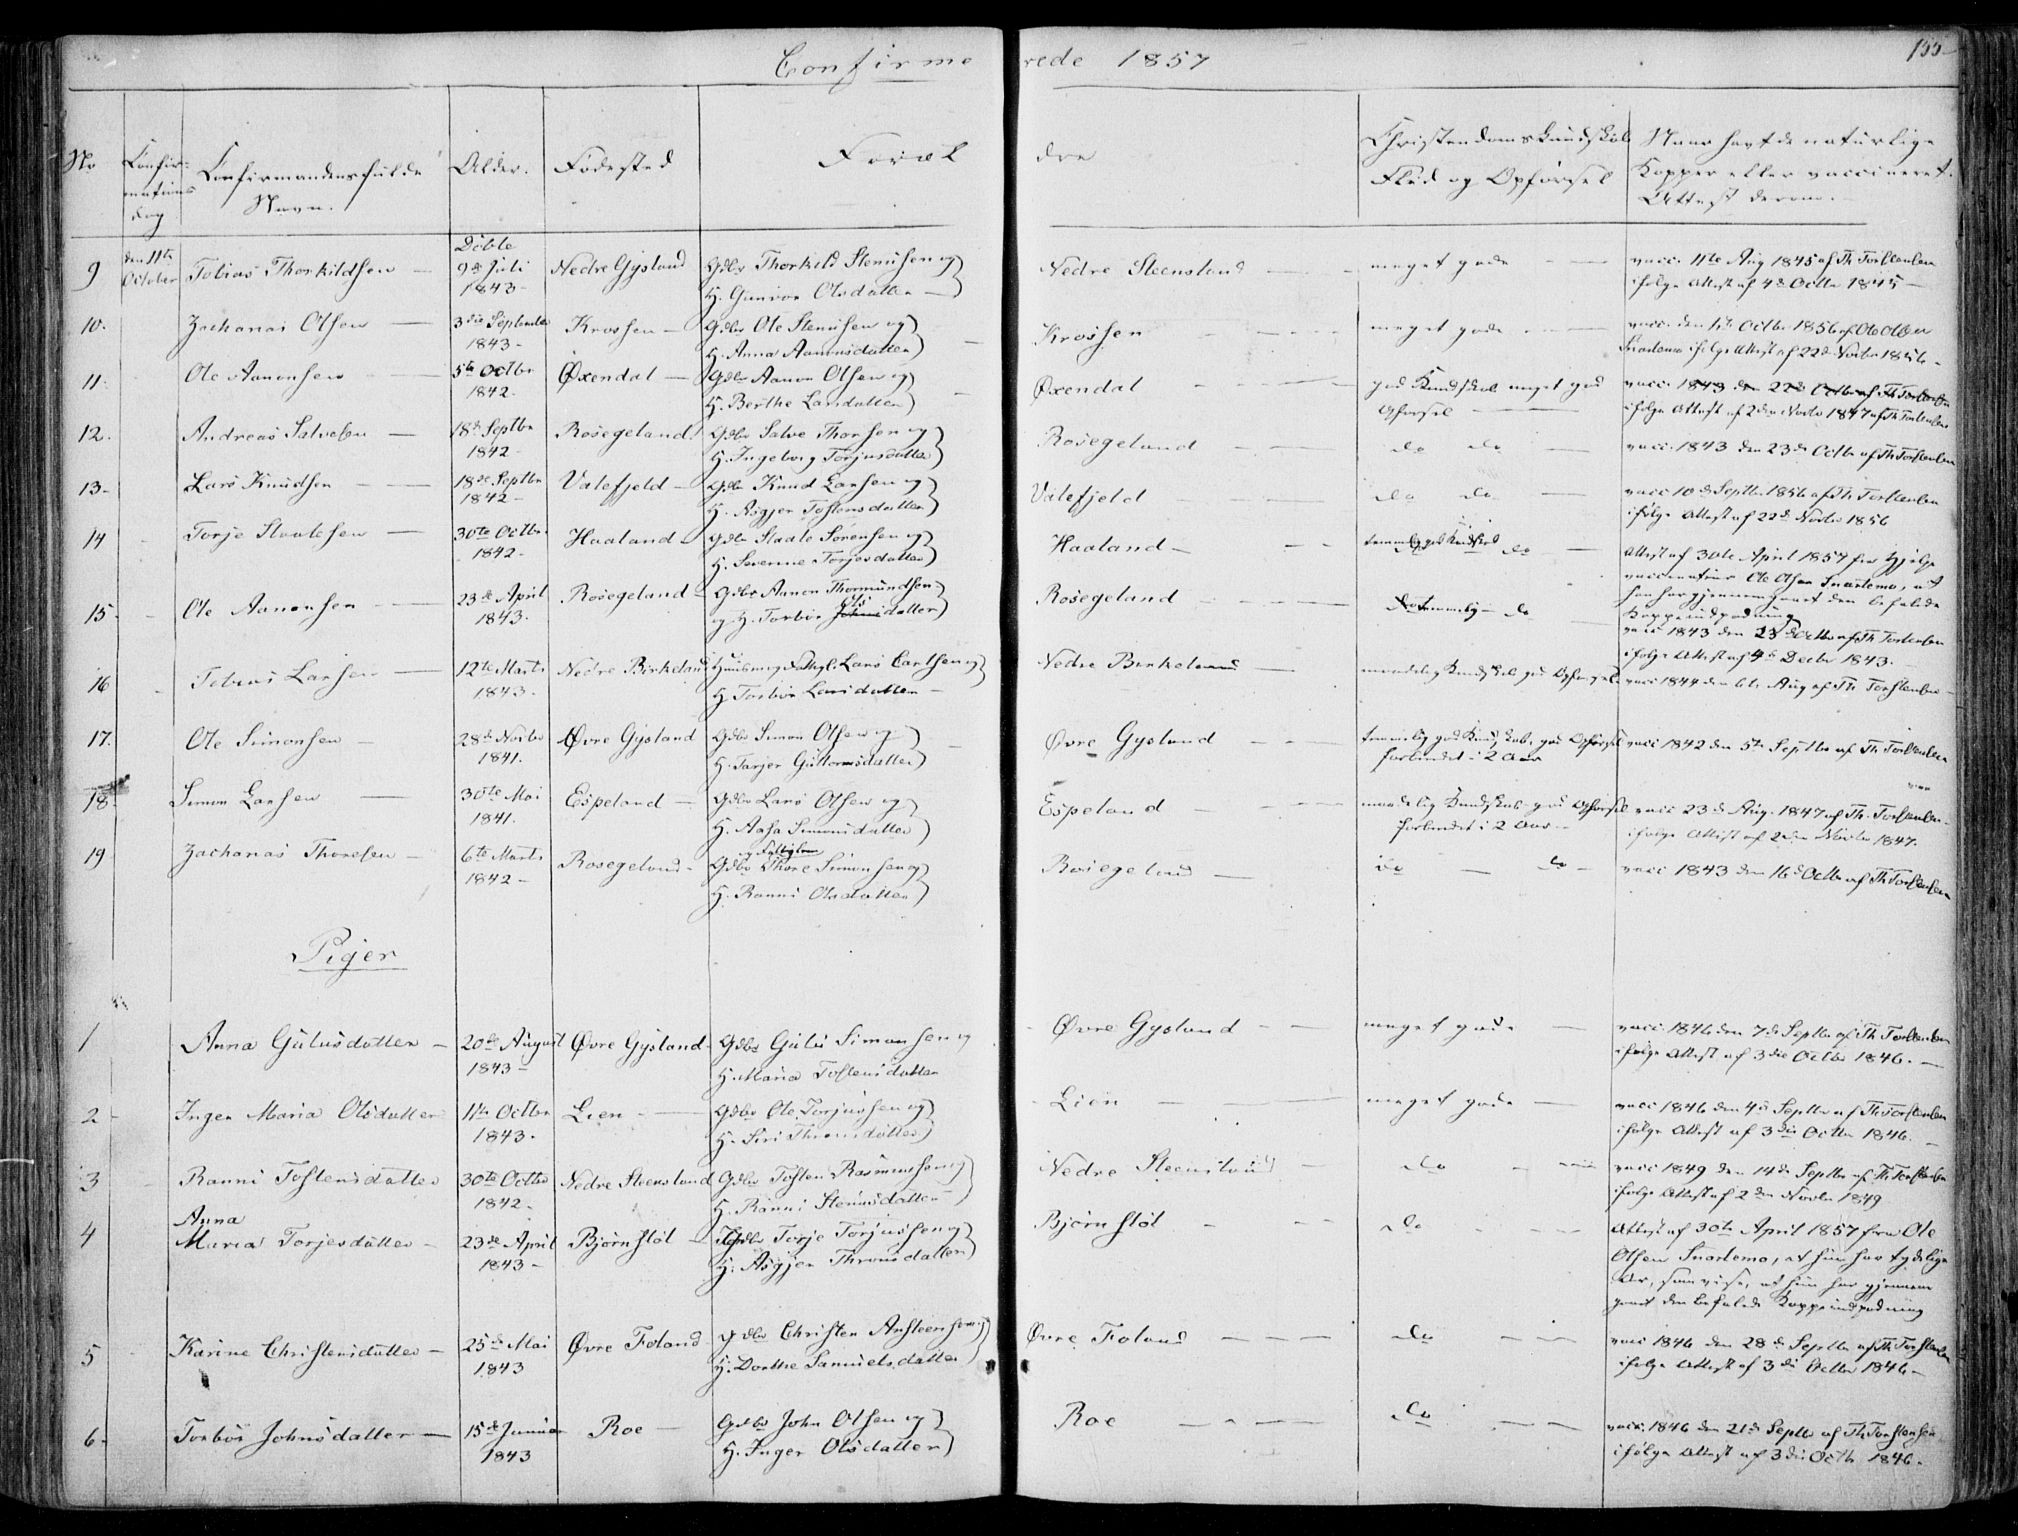 Confirmerede 1857
155
No
Confirmations dag
Confirmandens fulde Navn.
Alder.
Fødested
Forældre
Christendomskundskab Flid og Opførsel
Naar havt de naturlige Kopper eller vaccineret. Attest derom.
9 den 11te October Tobias Thorkildsen — Døbte 9de Juli 1843 Nedre Gysland Gdbr Thorkild Stenersen og H. Gunvor Olsdatter — Nedre Steensland — meget gode — vacc. 11te Aug 1845 af Th Torstensen ifølge Attest af 4de Octbr 1845 —
10. Zacharias Olsen — 3die September 1843 — Krossen — Gdbr Ole Stenersen og H. Anna Aanonsdatter Krossen — meget gode — vacc. den 1ste Octbr 1856 af Ole Olsen Snartemo ifølge Attest af 22de Novbr 1856 —
11. Ole Aanonsen — 5te Octbr 1842. Øxendal — Gdbr Aanon Olsen og H. Berthe Larsdatter Øxendal — god Kundskab meget god Opførsel — vacc. 1843 den 22de Octbr af Th Torstensen ifølge Attest af 2den Novbr 1847 af Th Torstensen
12. Andreas Salvesen — 18de Septbr 1842 — Rosegeland Gdbr Salve Thorsen og H. Ingeborg Torjusdatter Rosegeland — do do — vacc. 1843 den 23de Octbr af Th Torstensen
13 — Lars Knudsen — 18de Septbr 1842 — Vatefjeld — Gdbr Knud Larsen og H. Asgjer Tostensdatter Vatefjeld — do do — vacc 10de Septbr 1856 af Th Torstensen ifølge Attest af 22de Novbr 1856
14 Torje Staalesen — 30te Octbr 1842 — Haaland — Gdbr Staale Sørensen og H. Severine Torjesdatter Haaland — temmelig god Kundskab do — Attest af 30te April 1857 fra Hjelpevaccinateur Ole Olsen Snartemo, at han har gjennemgaaet den befalede Koppeindpodning
15. Ole Aanonsen — 23de April 1843. Rosegeland — Gdbr Aanon Thormundsen og H. Torbor Olsdatter Rosegeland — do temmelig — do vacc 1843 den 23de Octbr af Th Torstensen ifølge Attest af 4de Decbr 1843. —
16 Tobias Larsen — 12te Marts 1843. Nedre Birkeland Huusm. og Fattigl. Lars Carlsen og H Torbor Larsdatter — Nedre Birkeland — maadelig Kundskab god Opførsel. vacc 1844 den 6te Aug af Th Torstensen —
17. Ole Simonsen — 28de Novbr 1841. Øvre Gysland Gdbr Simon Olsen og H. Tarjer Guttormsdatter Øvre Gysland — temmelig god Kundskab, god Opførsel forberedet i 2 Aar vacc 1842 den 5te Septbr af Th Torstensen
18. Simon Larsen — 30te Mai 1841. Espeland — Gdbr Lars Olsen og H. Aasa Simonsdatter Espeland — maadelig Kundskab god Opførsel forberedet i 2 Aar — vacc 23de Aug. 1847 af Th. Torstensen — ifølge Attest af 2den Novbr 1847.
19 Zacharias Thoresen — 6te Marts 1842 — Rosegeland — Gdbr og Fattiglem Thore Simonsen og H. Ranni Olsdatter Rosegeland — do — do — vacc 1843 den 16de Octbr af Th Torstensen
Piger
1 Anna Gulusdatter — 20de August 1843 — Øvre Gysland — Gdbr Gulu Simonsen og H. Maria Tostensdatter Øvre Gysland — meget gode — vacc. 1846 den 7de Septbr af Th Torstensen ifølge Attest af 3die Octbr 1846. —
2 — Inger Maria Olsdatter 11te Octbr 1843. Lien — Gdbr Ole Torjussen og H. Siri Thronsdatter Lien — meget gode — vacc 1846 den 4de Septbr af Th Torstensen ifølge Attest af 3die Octbr 1846. —
3 Ranni Tostensdatter 30te Octbr 1842 — Nedre Steensland Gdbr Tosten Rasmussen og H. Ranni Stenersdatter Nedre Steensland — do — vacc 1849 den 14de Septbr af Th Torstensen ifølge Attest af 2den Novbr 1849
4 Anna Maria Torjesdatter — 23de April 1843 — Bjørnstøl — Gdbr Torje Torjussen og H. Asgjer Thronsdatter Bjørnstøl — do — Attest af 30te April 1857 fra Ole Olsen Snartemo, at hun har tydelige Ar, som vise, at hun har gjennemgaaet den befalede Koppeindpodning
5 Karine Christensdatter — 25de Mai 1843 Øvre Foland Gdbr Christen Ansteensen og H. Dorthe Samuelsdatter Øvre Foland — do — vacc 1846 den 28de Septbr af Th Torstensen ifølge Attest af 3die Octbr 1846 —
6 — Torbor Johnsdatter — 15de Januar 1843 Roe — Gdbr John Olsen og H. Inger Olsdatter Roe — do — vacc. 1846 den 21de Septbr af Th Torstensen ifølge Attest af 3die Octbr 1846 —